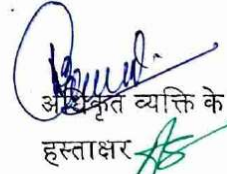 अधिकृत व्यक्ति के
हस्ताक्षर